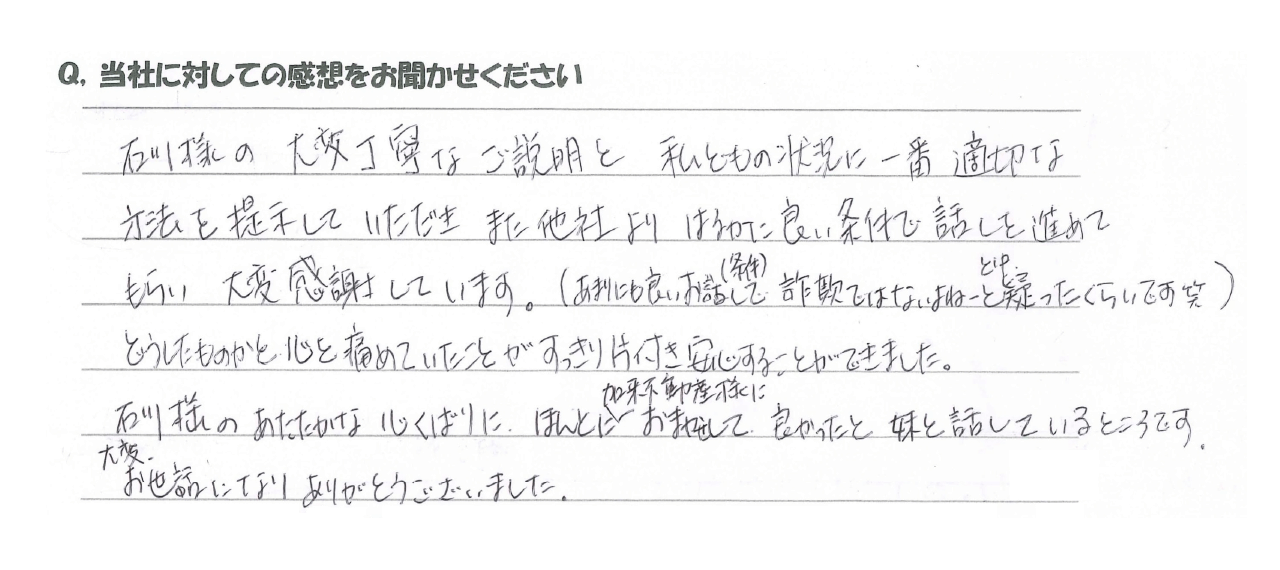 Q. 当社に対しての感想をお聞かせください
石川様の 大変丁寧なご説明と 私どもの状況に一番適切な
方法を提示していただき また他社より はるかに良い条件で話しを進めて
もらい 大変感謝しています。(あまりにも良いお話(条件)して 詐欺ではないよねーととは、疑ったくらいです笑)
どうしたものかと心を痛めていたことがすっきり片付き安心することができました。
石川様のあたたかな心くばりに、ほんとに加来不動産様におまかせして 良かったと妹と話しているところです。
大変、お世話になりありがとうございました。